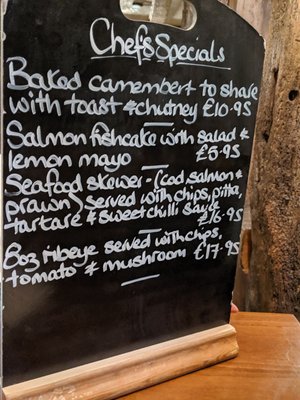 Chef's Specials
Baked camembert to share
with toast & chutney £10.95
Salmon fishcake with salad &
lemon mayo £5.95
Seafood skewer - (cod, salmon &
prawn) served with chips, pitta,
tartare & sweet chilli sauce
£16.95
8oz ribeye served with chips,
tomato & mushroom £17.95